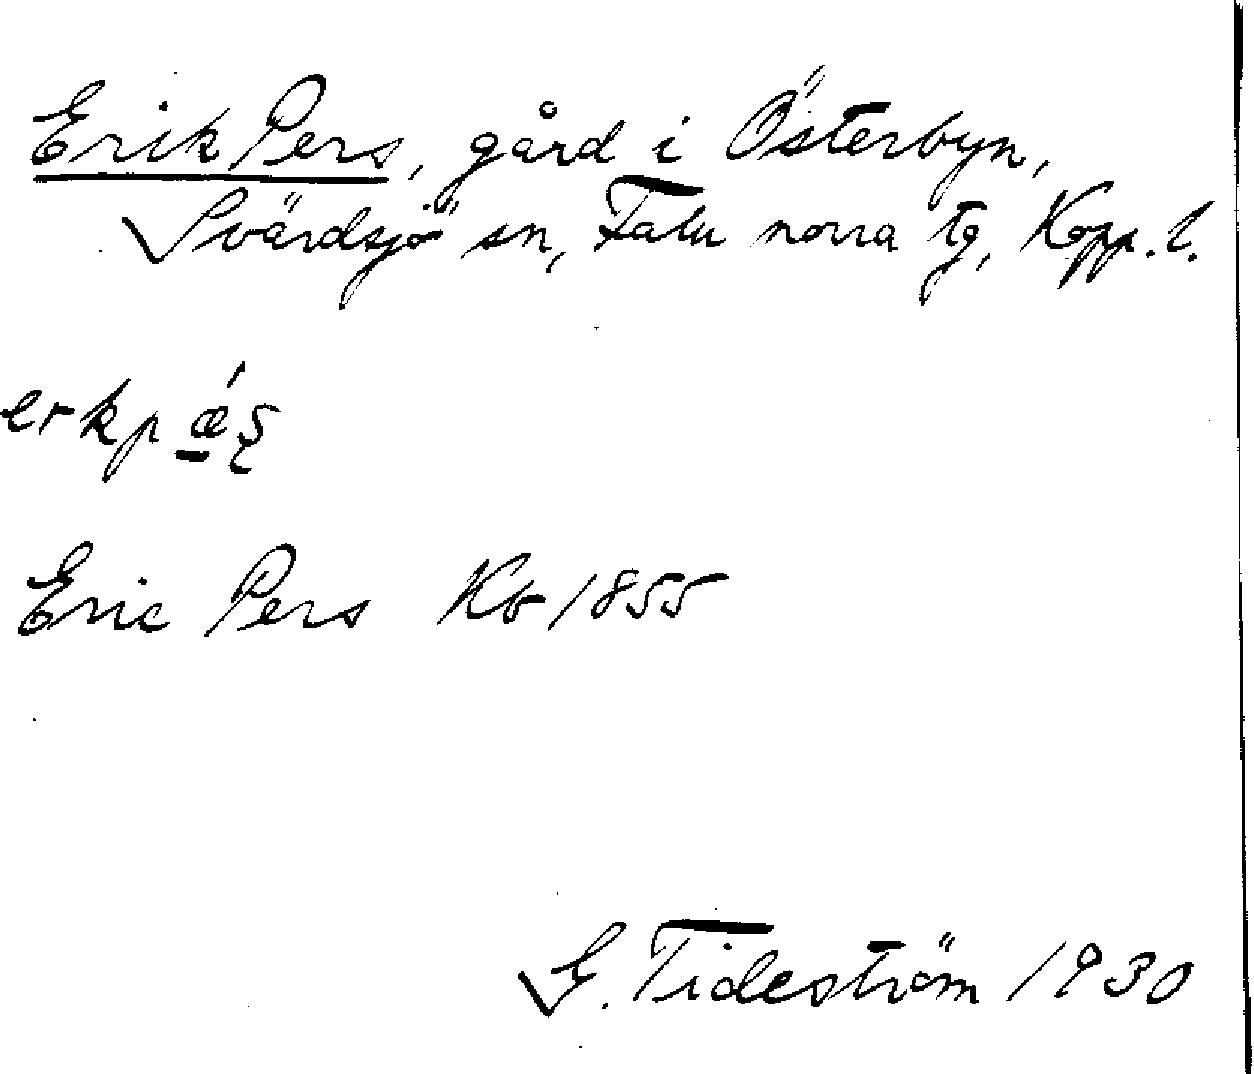 Erik Pers, gård i Österbyn,
Svärdsjö sn, Falu norra tg, Kopp. l.
Eric Pers Kb 1855
G. Tideström 1930